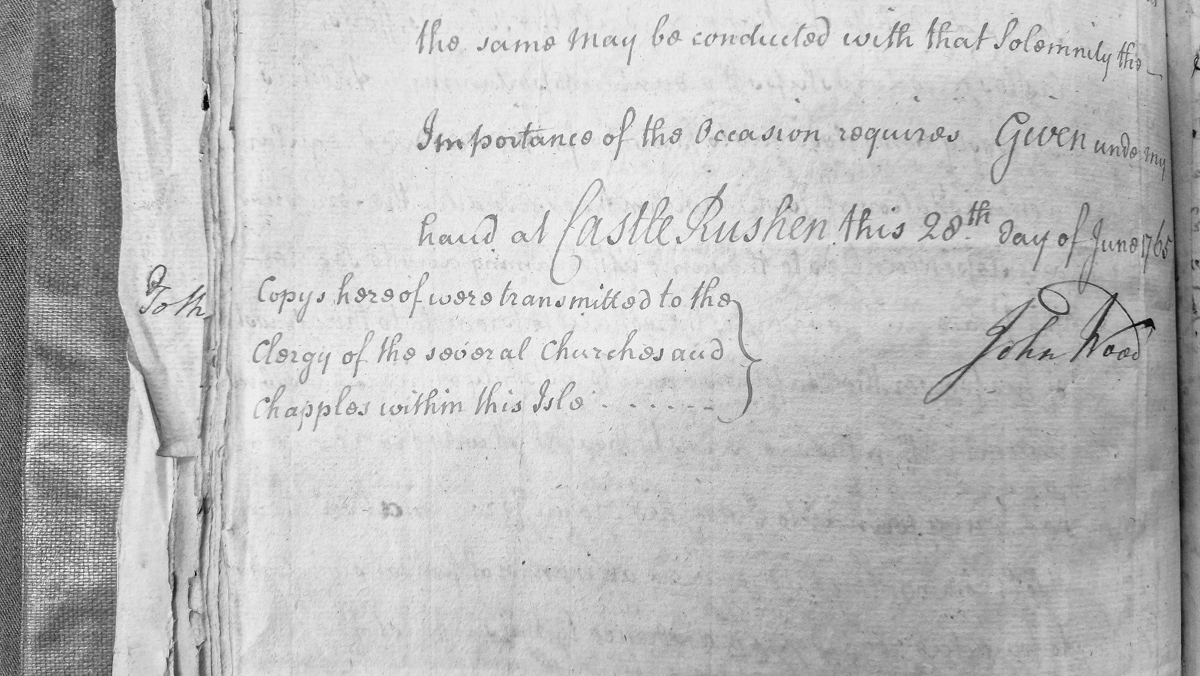 the same may be conducted with that Solemnity the
Importance of the Occasion requires Given unde my
hand at Castle Rushen this 28th day of June 1765
John Wood
To th
Copys hereof were transmitted to the
Clergy of the several Churches and
Chapples within this Isle